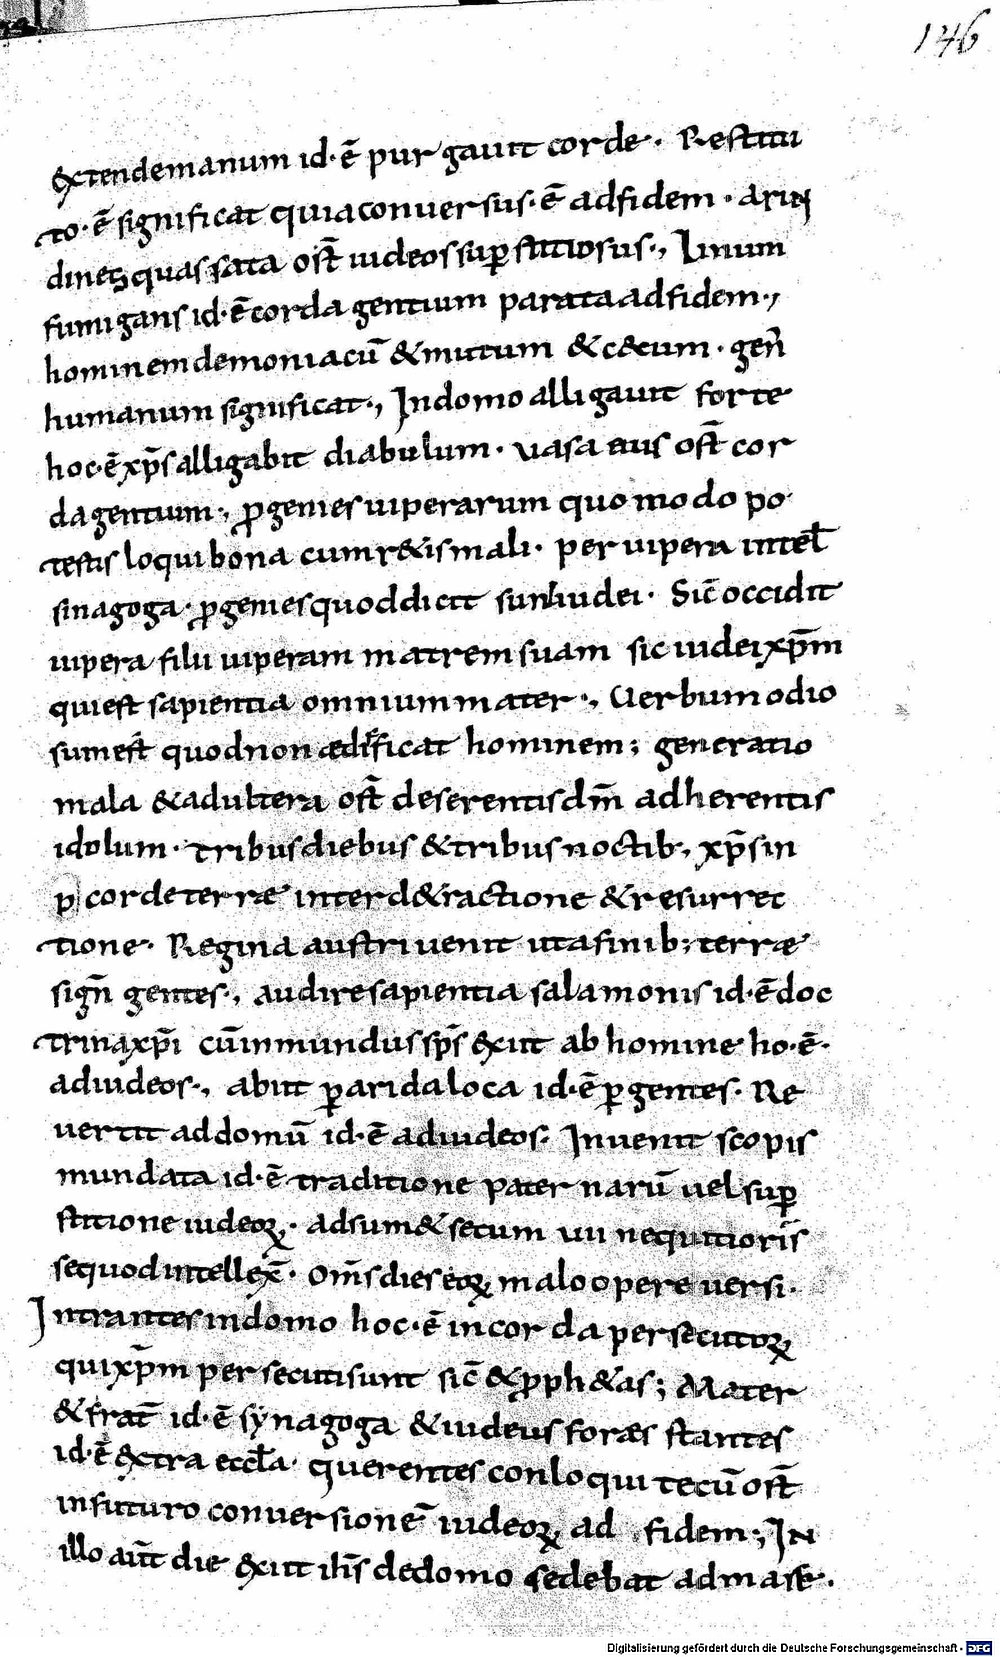 146
extendemanum id·ē purgauit corde· Restitu
to·ē significat quiaconuersus·ē adfidem· arun
dinē quassata ost̄ iudeossup̱stitiosus·, Linum
fumigans id·ē corda gentium parataadfidem·,
hominemdemoniacū &mutum &c&cum· geñ
humanum significat·, Indomo alligauit forte
hoc·ē xp̄s alligabit diabulum· uasa eius ost̄ cor
dagentium·, ꝓgenies uiperarum quomodo po
testis loqui bona cumr&ismali· per uipera intel̄
sinagoga· ꝓgeniesquoddicit sunt iudei· Sic̄ occidit
uipera filii uiperam matremsuam sic iudei xp̄m
quiest sapientia omniummater·, Uerbumodio
sumest quodnon ædificat hominem; generatio
mala &adultera ost̄ deserentisdm̄ adherentis
idolum· tribusdiebus &tribusnoctib·, xp̄sin
cordeterræ interd&ractione &resurrec
tione· Regina austriuenit utafinib; terræ
sigñ gentes·, audiresapientia salamonis id·ē doc
trinaxp̄i cūinmundussp̄s exiit abhomine ho·ē·
adiudeos·, abiit ꝑaridaloca id·ē ꝑgentes· Re
uertit addomū id·ē adiudeos· Inuenit scopis
mundata id·ē traditione paternarū uelsuꝑ
stitione iudeoꝝ· adsum&secum uii nequitioris
sequodintellex̄· om̄sdieseoꝝ maloopere uersi·
Intrantesindomo hoc·ē incorda persecutoꝝ
quixp̄m persecutisunt sic̄ &ꝓph&as; Mater
&frat̄ id·ē synagoga &iudeus foras stantes
id·ē extra eccl̄a· querentes conloqui tecū ost̄
infuturo conuersionē iudeoꝝ ad fidem·; IN
illo aut̄ die exiit ih̄s dedomo sedebat admare·
Digitalisierung gefördert durch die Deutsche Forschungsgemeinschaft - DFG